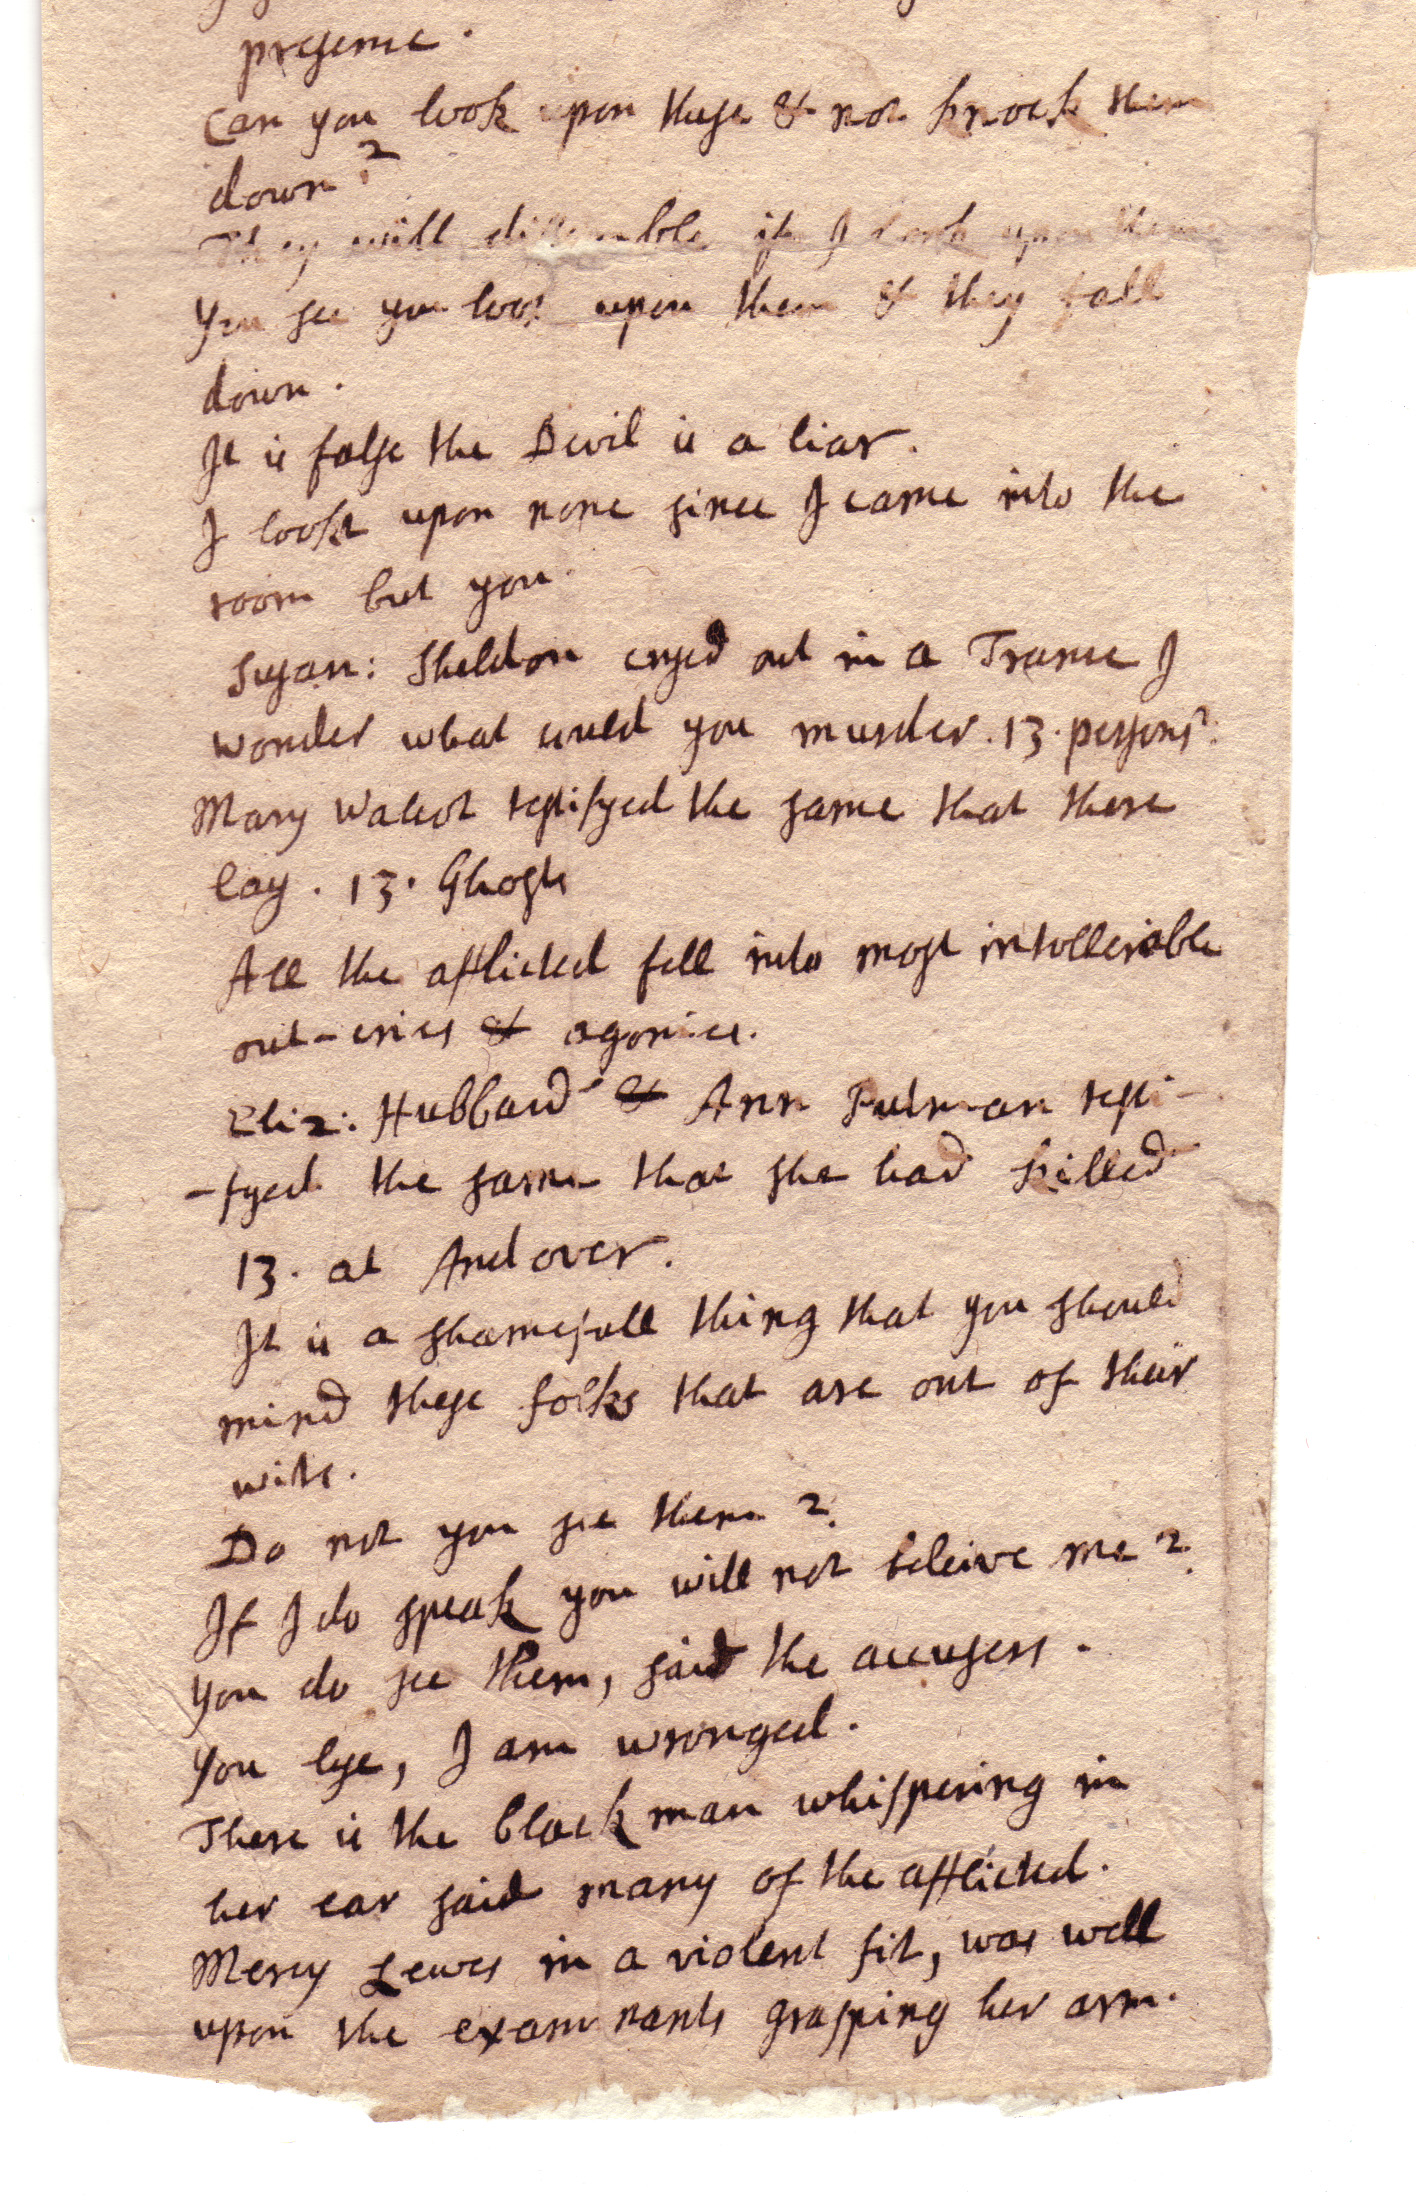 presence.
Can you look upon these & not knock them
down?
They will dissemble if I look upon them
You see you look upon them & they fall
down.
It is false the Devil is a liar.
I lookt upon none since I came into the
room but you.
Susan: Sheldon cryed out in a Trance I
wonder what could you murder. 13. persons?
Mary Walcot testifyed the same that there
lay. 13. Ghosts
All the afflicted fell into most intollerable
out-cries & agonies.
Eliz: Hubbard & Ann Putman testi-
-fyed the same that she had killed
13. at Andover.
It is a shamefull thing that you should
mind these folks that are out of their
wits.
Do not you see them?
If I do speak you will not beleive me?
You do see them, said the accusers.
You lye, I am wronged.
There is the black man whispering in
her ear said many of the afflicted.
Mercy Lewes in a violent fit, was well
upon the examinants grasping her arm.